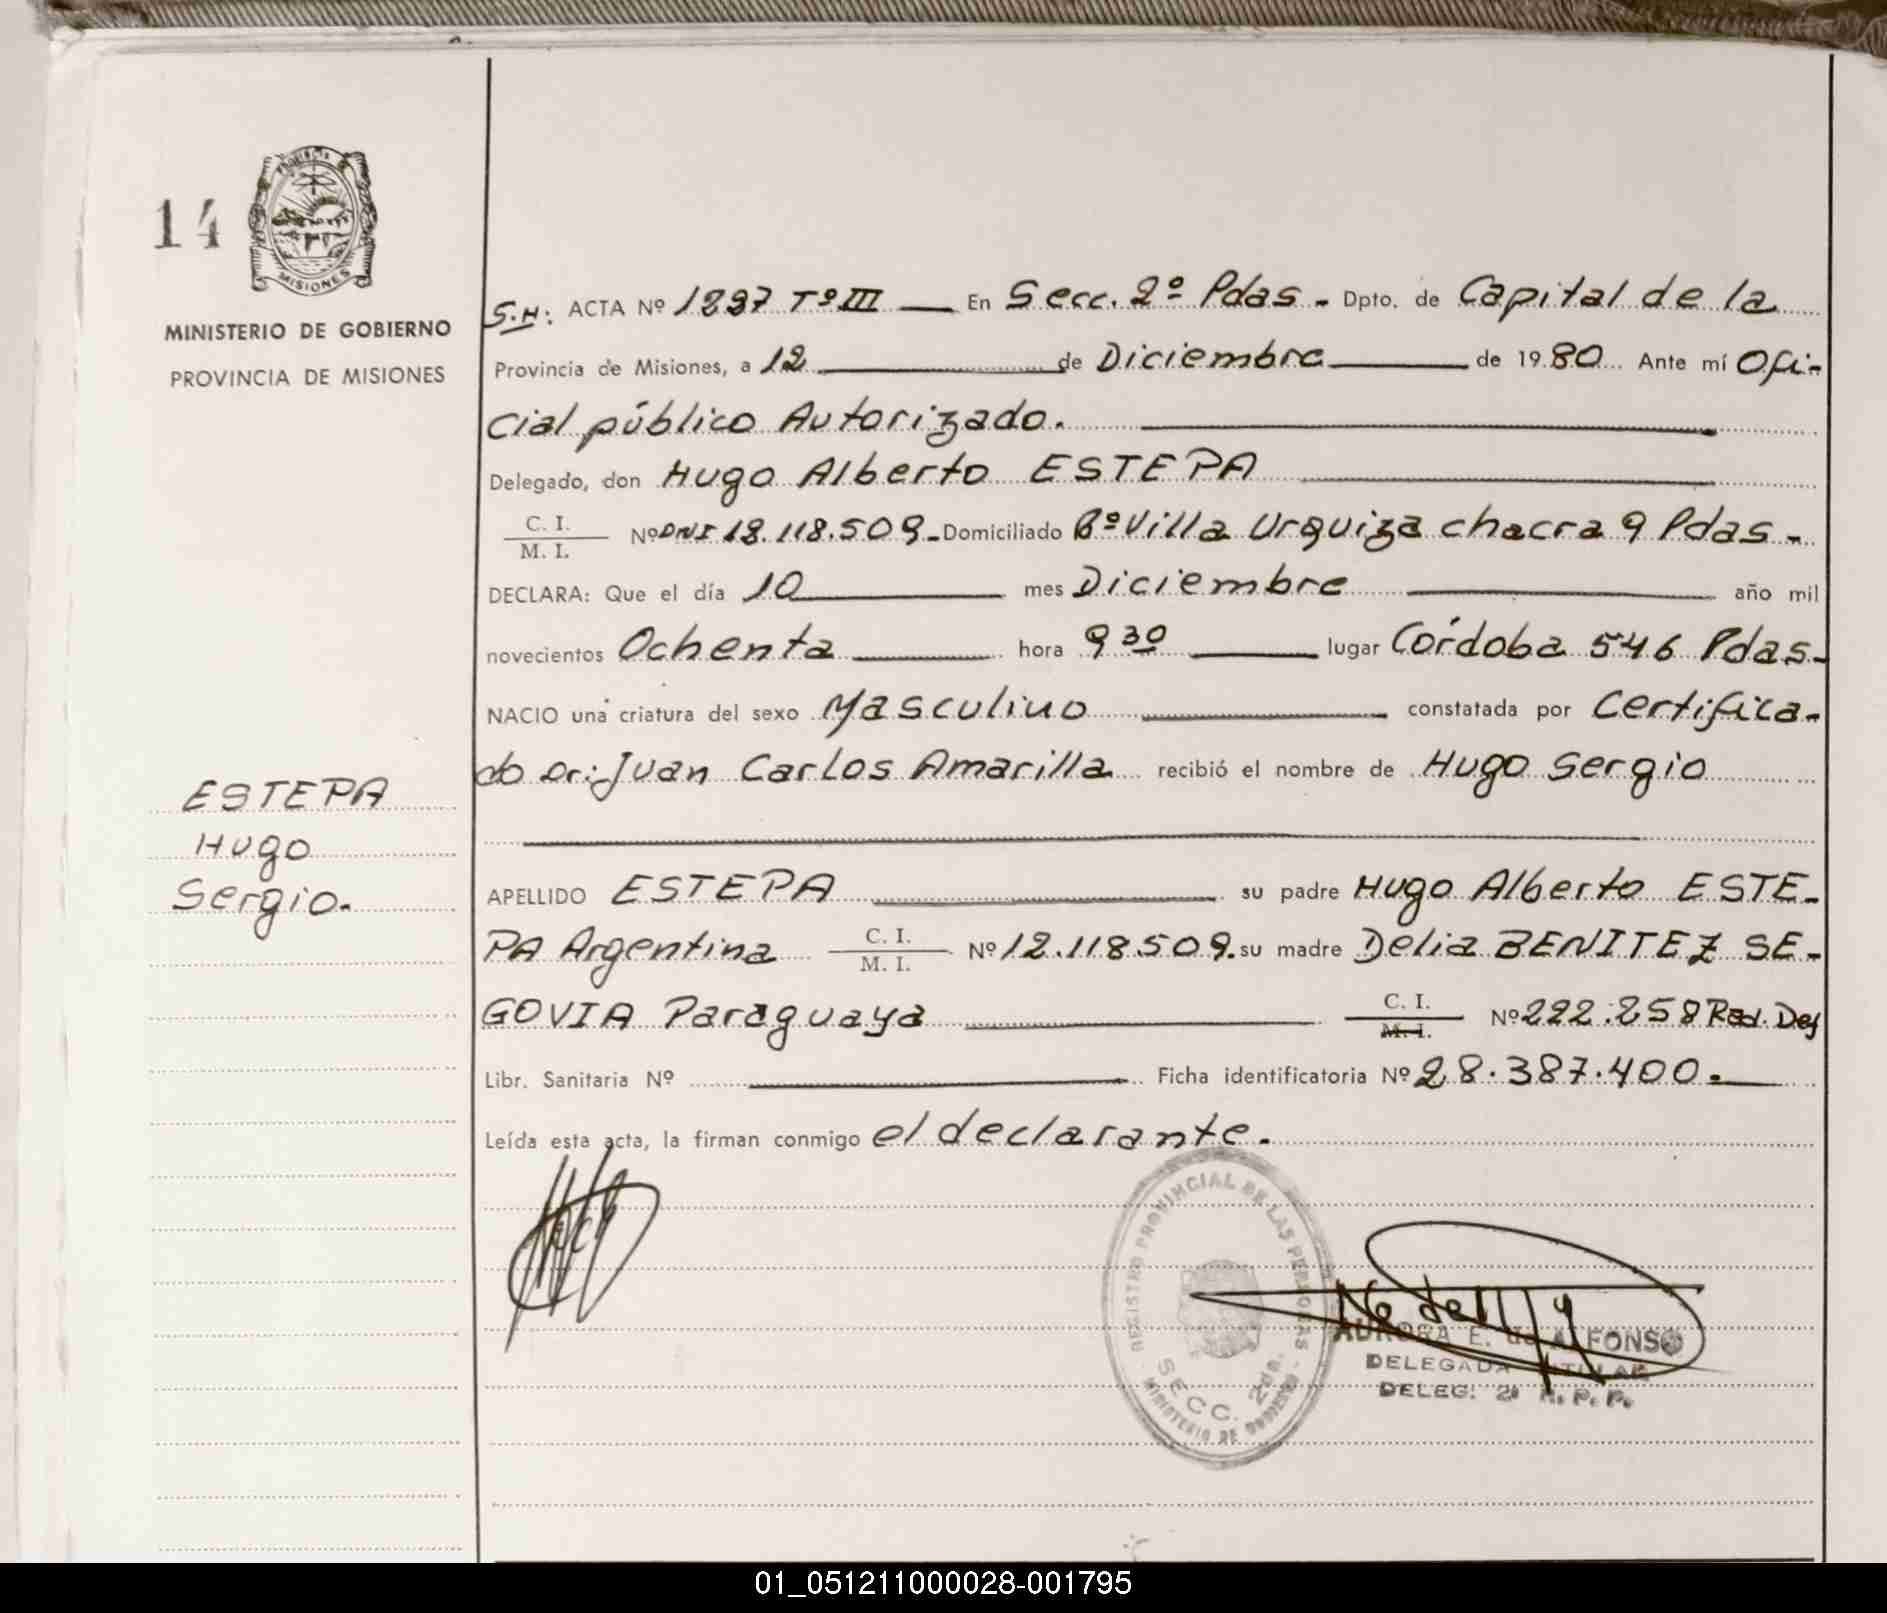 14
PROVINCIA DE
MISIONES
MINISTERIO DE GOBIERNO
PROVINCIA DE MISIONES
ESTEPA
Hugo
Sergio.
S.H: ACTA Nº 1297 Tº III — En Secc. 2º Pdas - Dpto. de Capital de la
Provincia de Misiones, a 12 de Diciembre de 1980 Ante mí Ofi-
cial público Autorizado.
Delegado, don Hugo Alberto ESTEPA
C. I.
M. I. Nº DNI 12.118.509 - Domiciliado Bº Villa Urquiza chacra 9 Pdas -
DECLARA: Que el día 10 mes Diciembre año mil
novecientos Ochenta hora 9 30 lugar Córdoba 546 Pdas-
NACIO una criatura del sexo Masculino constatada por Certifica-
do Dr: Juan Carlos Amarilla recibió el nombre de Hugo Sergio
APELLIDO ESTEPA su padre Hugo Alberto ESTE-
PA Argentina C. I.
M. I. Nº 12.118.509. su madre Delia BENITEZ SE-
GOVIA Paraguaya C. I.
M. I. Nº 222.258 Rad. Def
Libr. Sanitaria Nº Ficha identificatoria Nº 28.387.400.
Leída esta acta, la firman conmigo el declarante.
REGISTRO PROVINCIAL DE LAS PERSONAS
SECC. 2da.
MINISTERIO DE GOBIERNO
AURORA E. de ALFONSO
DELEGADA TITULAR
DELEG. 2 R. P. P.
01_051211000028-001795